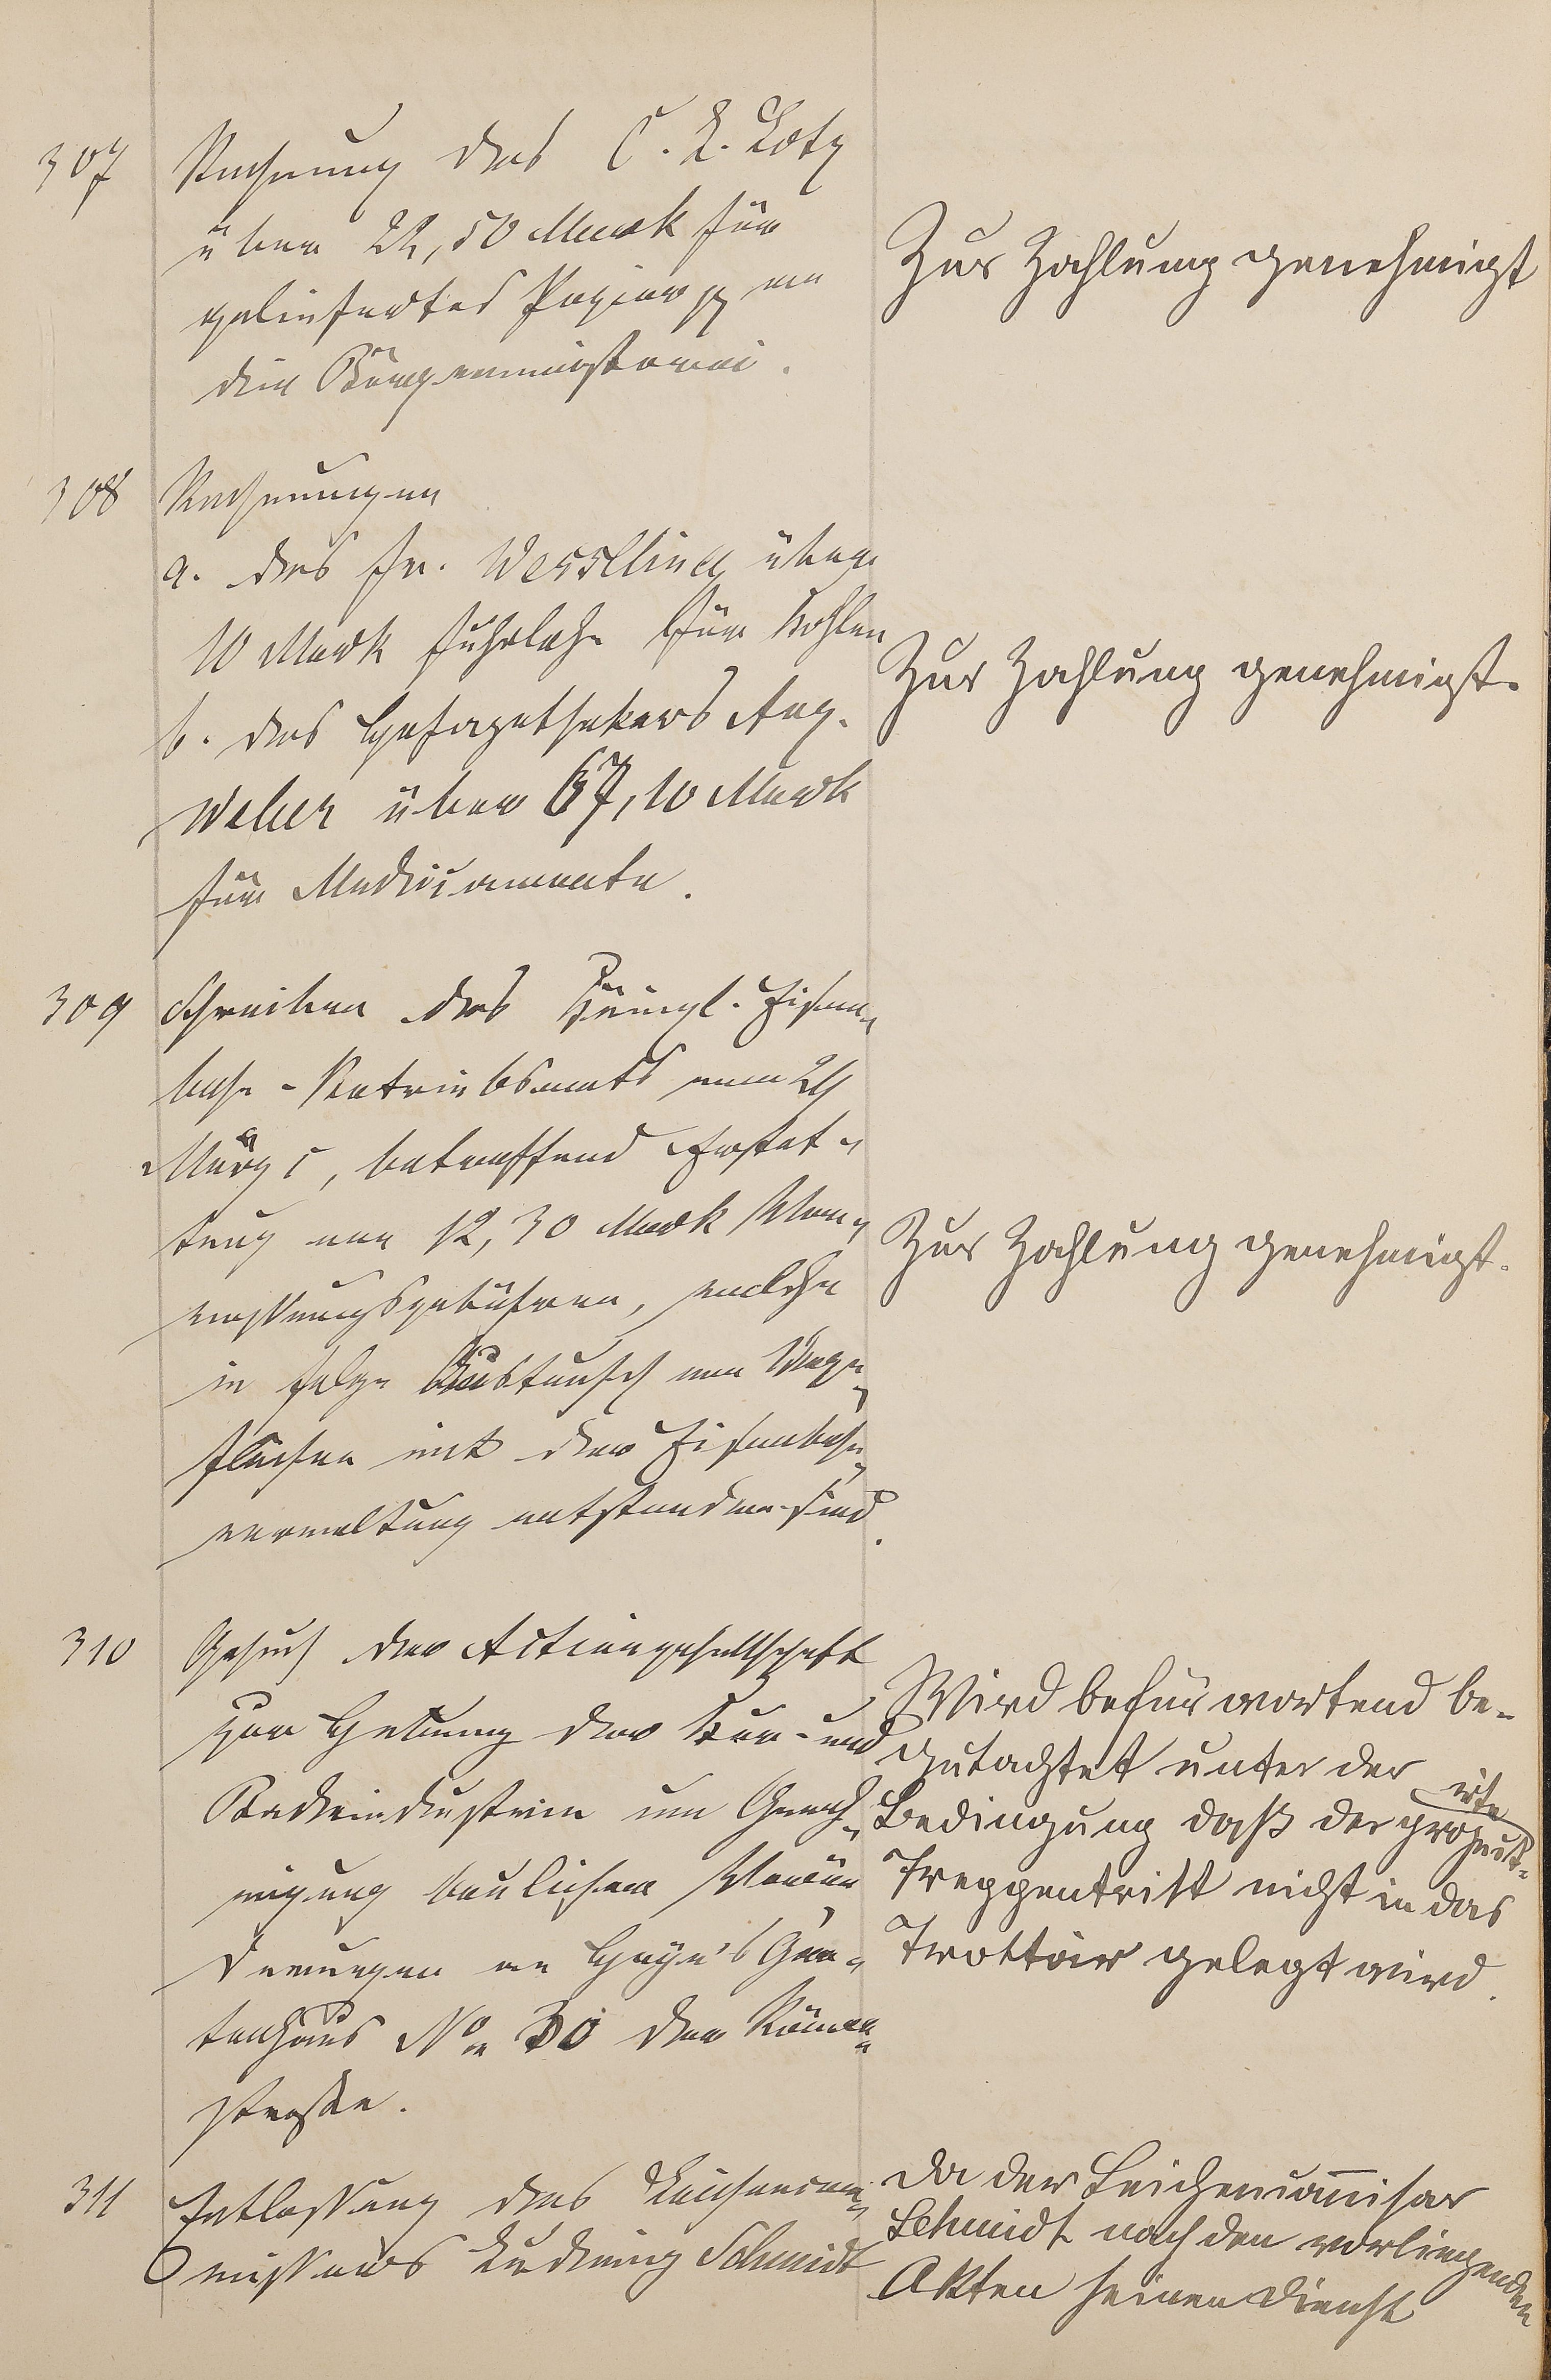 307
Rechnung des C. L. Lotz
über 22,50 Mark für
geliefertes Papier pp an
die Bürgermeisterei.
Zur Zahlung genehmigt
308
Rechnungen
a. des Fr. Wessling über
10 Mark Fuhrlohn für Kohlen
b. des Hofapothekers Aug.
Weber über 67,10 Mark
für Medicamente.
Zur Zahlung genehmigt.
309
Schreiben des Königl. Eisen-
bahn-Betriebsamts vom 24
März c, betreffend Erstat-
tung von 12,30 Mark Ver-
messungsgebühren, welche
in Folge Austausch von Wege-
flächen mit der Eisenbahn-
verwaltung entstanden sind.
Zur Zahlung genehmigt.
310
Gesuch der Actiengesellschaft
zur Hebung der Kur- und
Badeindustrie um Geneh-
migung baulicher Verän-
derungen am Gar-
tenhaus No 30 der Römer-
straße.
Wird befürwortend be-
gutachtet unter der
Bedingung daß der projekt-
irte
Treppentritt nicht in das
Trottoir gelegt wird.
311
Entlassung des Leichencom-
missärs Ludwig Schmidt
Da der Leichencom̄isar
Schmidt nach den vorliegenden
Akten seinen Dienst